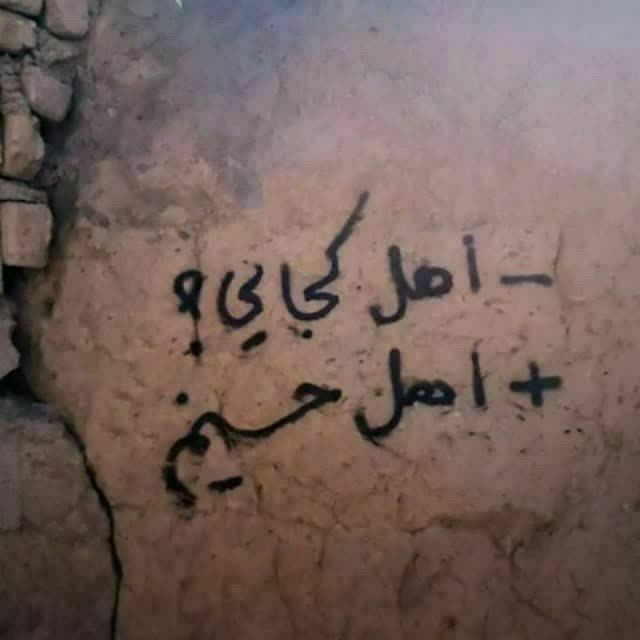 - اهل کجایی؟
+ اهل حسینم